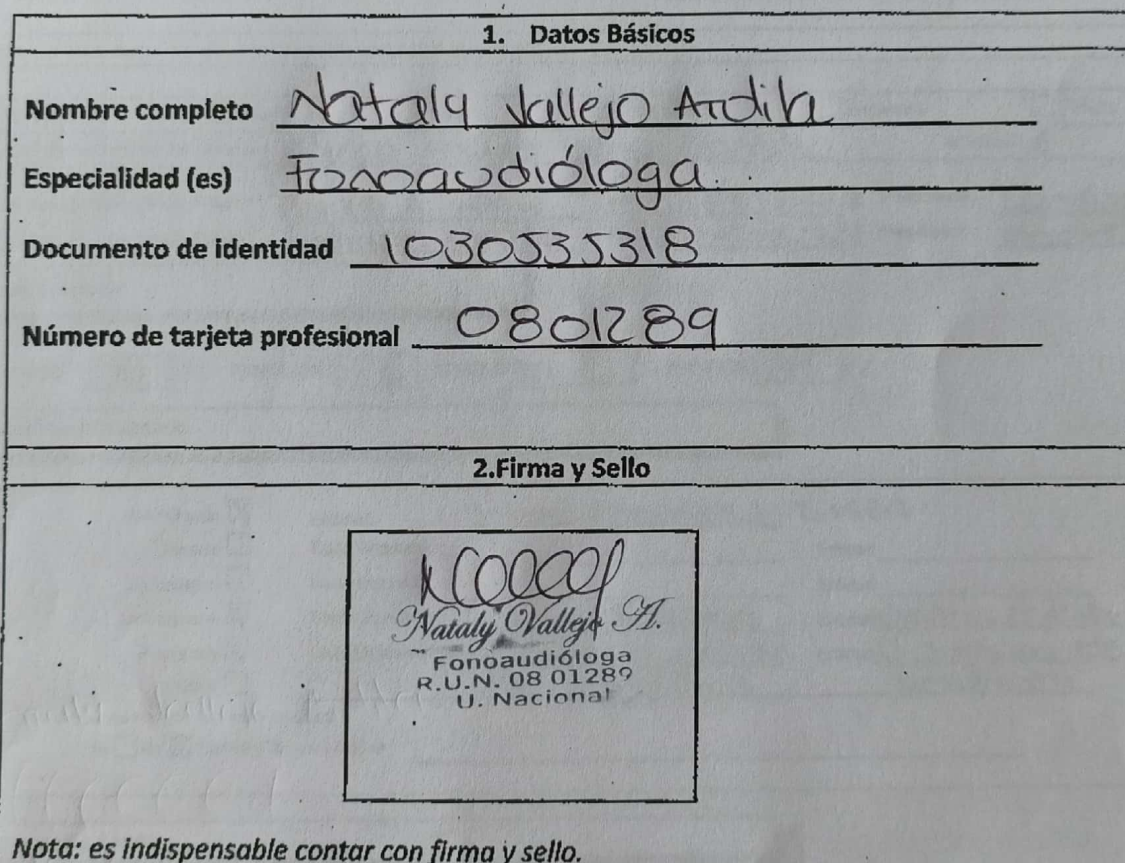 1. Datos Básicos
Nombre completo Nataly Vallejo Ardila
Especialidad (es) Fonoaudióloga
Documento de identidad 1030535318
Número de tarjeta profesional 0801289
2.Firma y Sello
Nataly Vallejo A.
Fonoaudióloga
R.U.N. 08 01289
U. Nacional
Nota: es indispensable contar con firma y sello.